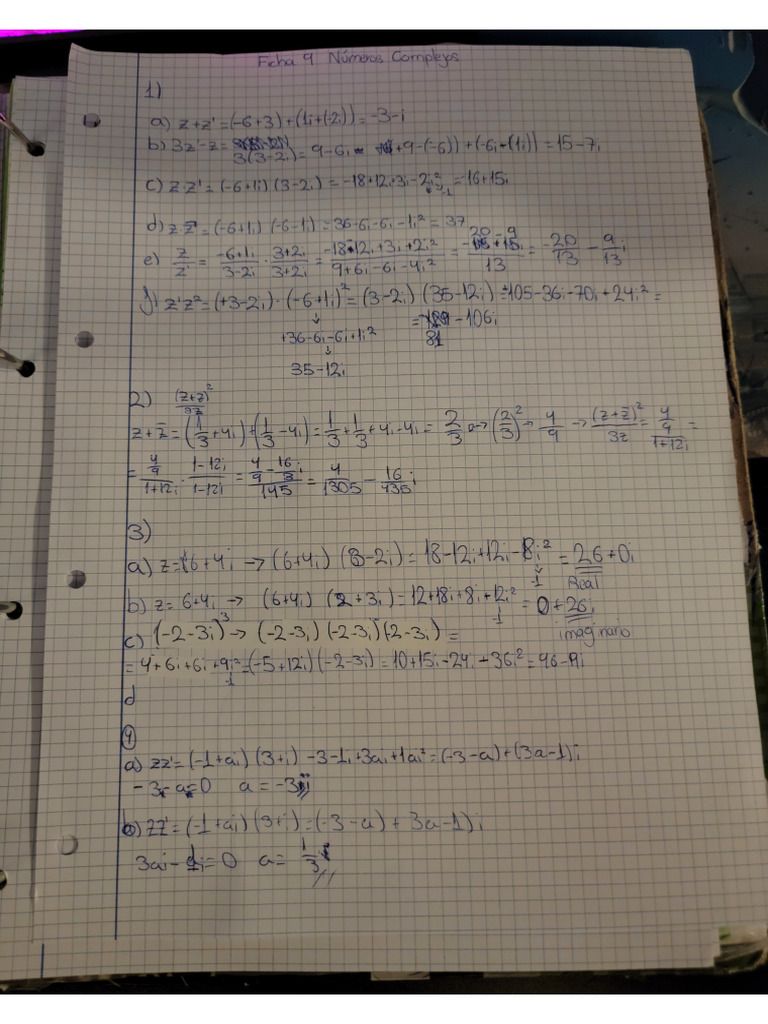 Ficha 9 Números Complejos
1)
a) z+z' = (-6+3) + (1i+(-2i)) = -3-i
b) 3z'-z = 3(3-2i) = 9-6i +9-(-6)) + (-6i-(1i)) = 15-7i
c) z·z' = (-6+1i) (3-2i) = -18+12i+3i-2i² = -16+15i
-1
d) z·z̄ = (-6+1i) (-6-1i) = 36-6i-6i-1i² = 37
e) z/z' = -6+1i/3-2i · 3+2i/3+2i = -18-12i+3i+2i²/9+6i-6i-4i² = -20-9i/13 = -20/13 - 9/13 i
f) z'z² = (+3-2i)·(-6+1i)² = (3-2i) (35-12i) = +105-36i-70i+24i² =
+36-6i-6i+1i² = 81-106i
35-12i
2) (z+z̄)²/3z
z+z̄ = (1/3+4i)+(1/3-4i) = 1/3+1/3+4i-4i = 2/3 → (2/3)² → 4/9 → (z+z̄)²/3z = 4/9/1+12i =
= 4/9/1+12i · 1-12i/1-12i = 4/9-16/3 i/145 = 4/1305 - 16/435 i
3)
a) z=6+4i → (6+4i) (3-2i) = 18-12i+12i-8i² = 26+0i
-1 Real
b) z= 6+4i → (6+4i) (2+3i) = 12+18i+8i+12i² = 0+26i
-1 imaginario
c) (-2-3i)³ → (-2-3i) (-2-3i) (-2-3i) =
= 4+6i+6i+9i² = (-5+12i) (-2-3i) = 10+15i-24i-36i² = 46-9i
-1
d
4)
a) zz' = (-1+ai) (3+i) -3-1i+3ai+1ai² = (-3-a)+(3a-1)i
-3-a=0 a=-3
b) zz' = (-1+ai) (3+i) = (-3-a)+3a-1)i
3ai-1i=0 a= 1/3